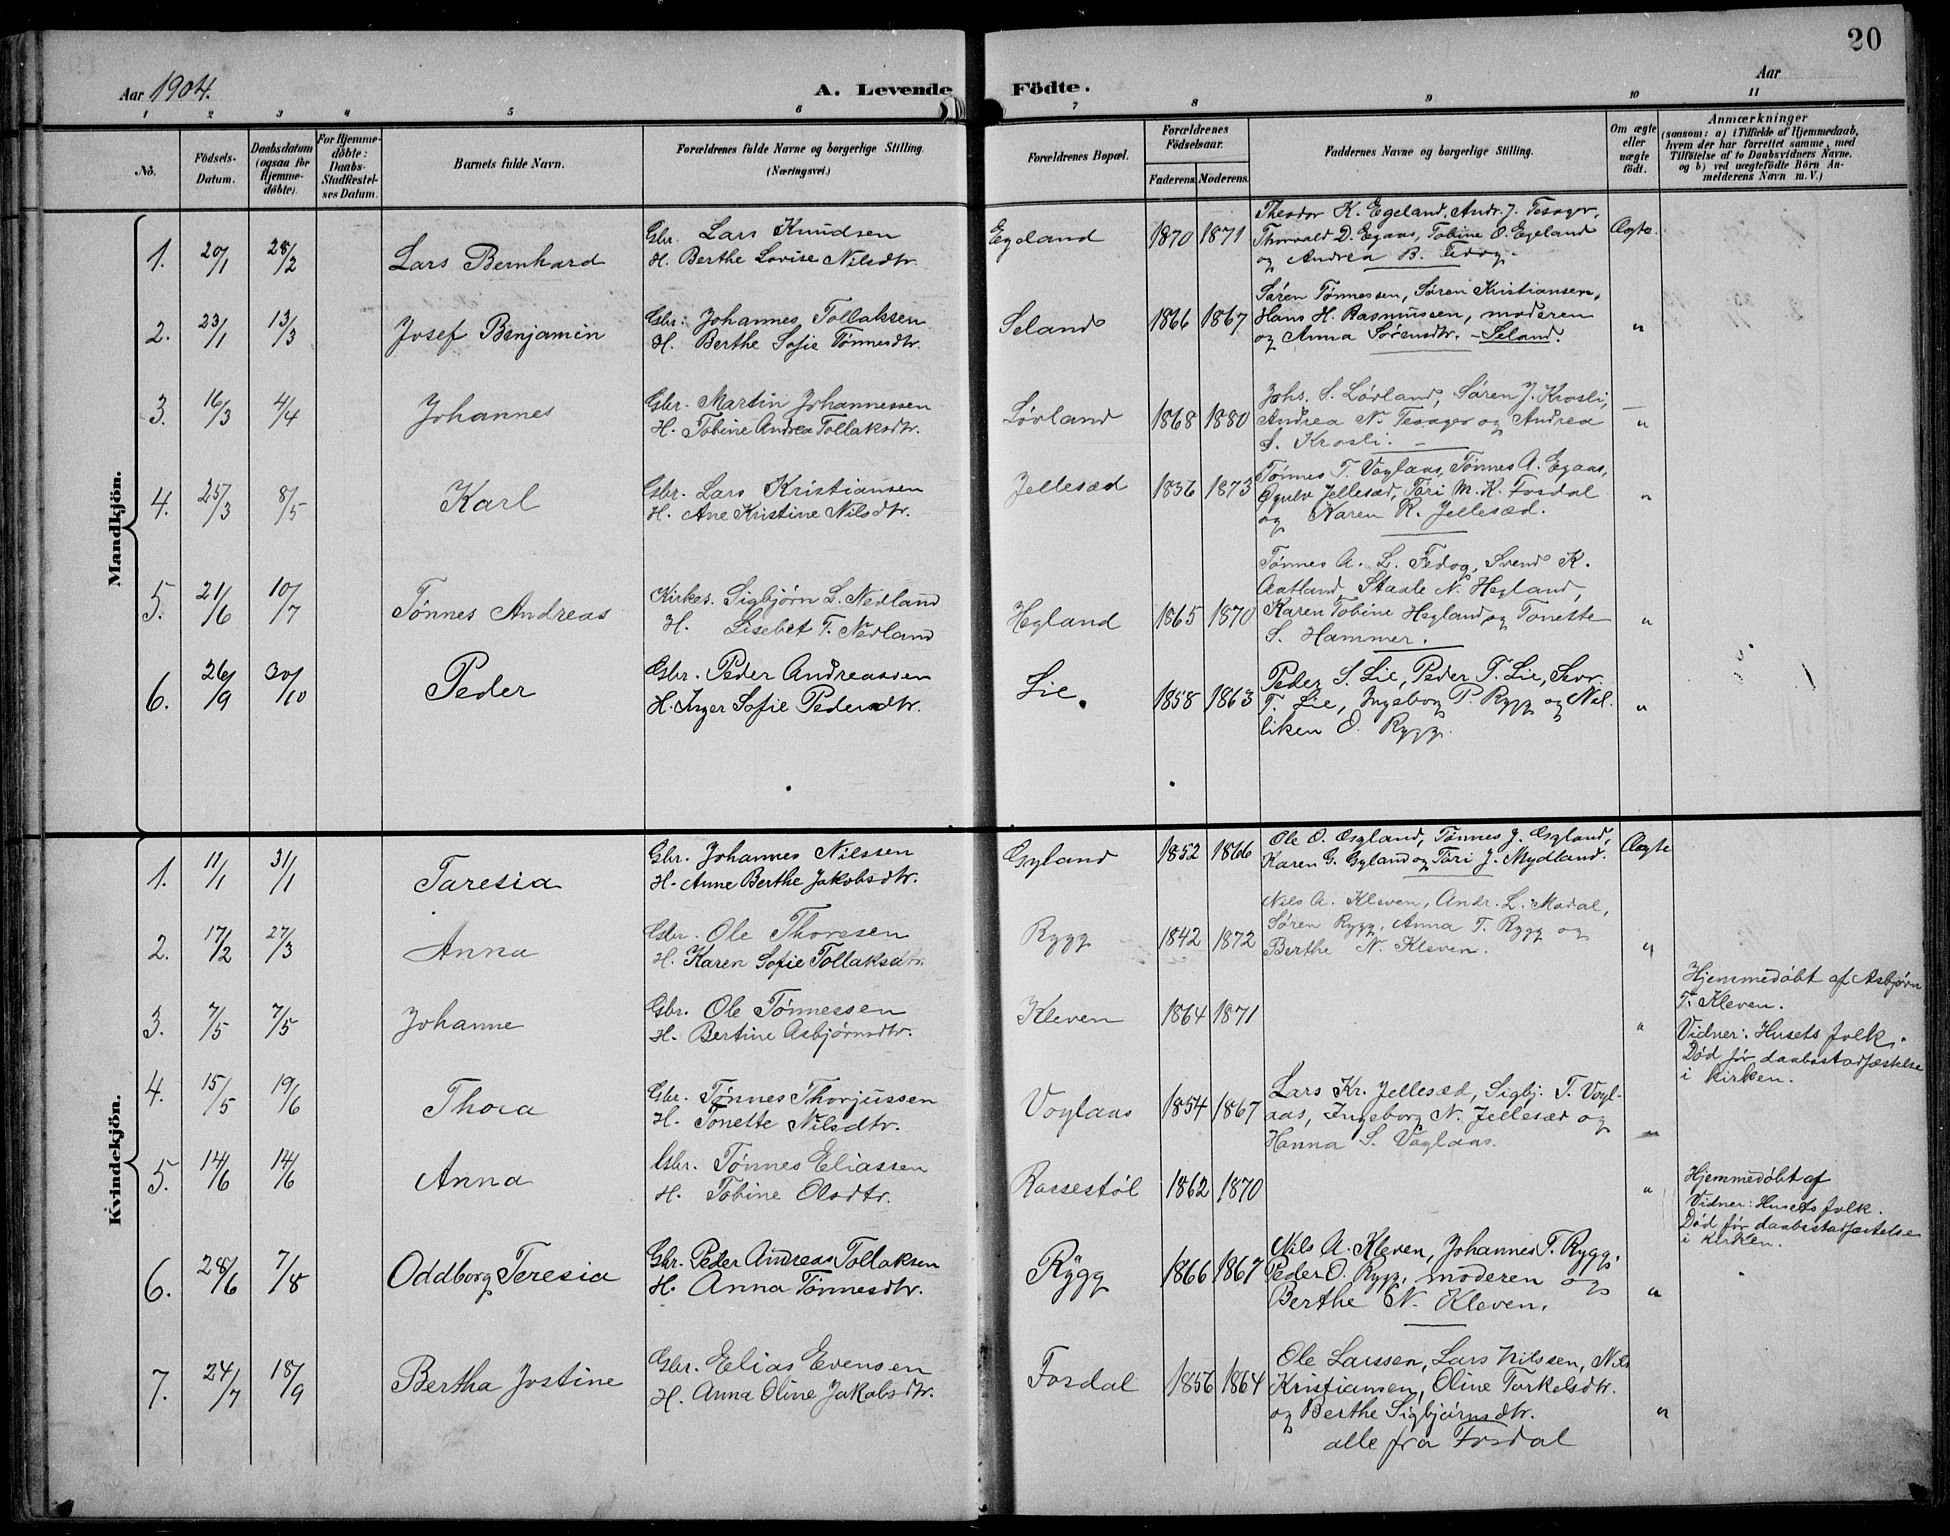 20
Aar 1904.
A. Levende Födte.
Aar
1 2 3 4 5 6 7 8 9 10 11
No.
Födsels-
Datum.
Daabsdatum
(ogsaa for
Hjemme-
döbte).
For Hjemme-
döbte:
Daabs-
Stadfæstel-
ses Datum.
Barnets fulde Navn.
Forældrenes fulde Navne og borgerlige Stilling.
(Næringsvei.)
Forældrenes Bopæl.
Forældrenes
Födselsaar.
Faderens. Moderens.
Faddernes Navne og borgerlige Stilling.
Om ægte
eller
uægte
födt.
Anmærkninger
(saasom: a) i Tilfælde af Hjemmedaab,
hvem der har forrettet samme, med
Tilföielse af to Daabsvidners Navne,
og b) ved uægtefödte Börn An-
melderens Navn m. V.)
Mandkjön.
1. 20/1 28/2 Lars Bernhard
Gbr. Lars Knudsen
H. Berthe Lovise Nilsdtr.
Egeland 1870 1871
Theodor K. Egeland, Andr. J. Tesager,
Thorvald D. Egaas, Tobine O. Egeland
og Andrea B. Fedog.
Ægte.
2. 23/1 13/3 Josef Benjamin
Gbr. Johannes Tollaksen
H. Berthe Sofie Tønnesdtr.
Seland 1866 1867
Søren Tønnessen, Søren Kristiansen,
Hans H. Rasmussen, moderen
og Anna Sørensdtr. - Seland.
"
3. 16/3 4/4 Johannes
Gbr. Martin Johannessen
H. Tobine Andrea Tollaksdtr.
Lövland 1868 1880
Johs. S. Lövland, Søren J. Krosli,
Andrea N. Tesager og Andrea
S. Krosli.
"
4. 25/3 8/5 Karl
Gbr. Lars Kristiansen
H. Ane Kristine Nilsdtr.
Jellesæd 1836 1873
Tønnes T. Voglaas, Tønnes A. Egaas,
Jellesæd, Tari M. K. Fosdal
og Karen R. Jellesæd.
"
5. 21/6 10/7 Tönnes Andreas
Kirkes. Sigbjørn L. Nedland
H. Lisebet T. Nedland
Hegland 1865 1870
Tønnes A. L. Fedog, Svend K.
Aatland, Staale N. Hegland,
Karen Tobine Hegland og Tonette
S. Hammer.
"
6. 26/9 30/10 Peder
Gbr. Peder Andreassen
H. Inger Sofie Pedersdtr.
Lie 1858 1863
Peder S. Lie, Peder T. Lie, Sivr.
T. Lie, Ingeborg P. Rygg og Nel-
liken O. Rygg.
"
Kvindekjön.
1. 11/1 31/1 Taresia
Gbr. Johannes Nilssen
H. Anne Berthe Jakobsdtr.
Gyland 1852 1866
Ole O. Gyland, Tønnes J. Gyland,
Karen G. Gyland og Tari J. Mydland.
Ægte
2. 17/2 27/3 Anna
Gbr. Ole Thoresen
H. Karen Sofie Tollaksdtr.
Rygg 1842 1872
Nils A. Kleven, Andr. L. Modal,
Søren Rygg, Anna T. Rygg og
Berthe N. Kleven.
"
3. 7/5 7/5 Johanne
Gbr. Ole Tønnessen
H. Bertine Asbjørnsdtr.
Kleven 1864 1871
"
Hjemmedöbt af Asbjørn
T. Kleven.
Vidner: Husets folk.
Død før daabsstadfæstelse
i kirken.
4. 15/5 19/6 Thora
Gbr. Tønnes Thorjussen
H. Tonette Nilsdtr.
Voglaas 1854 1867
Lars Kr. Jellesæd, Sigbj. T. Vogl-
aas, Ingeborg N. Jellesæd og
Hanna S. Voglaas.
"
5. 14/6 14/6 Anna
Gbr. Tønnes Eliassen
H. Tobine Olsdtr.
Rossestøl 1862 1870
"
Hjemmedöbt af
Vidner: Husets folk.
Død før daabsstadfæstelse
i kirken.
6. 28/6 7/8 Oddborg Teresia
Gbr. Peder Andreas Tollaksen
H. Anna Tønnesdtr.
Rygg 1866 1867
Nils A. Kleven, Johannes T. Rygg,
Peder O. Rygg, moderen og
Berthe N. Kleven.
"
7. 24/7 18/9 Bertha Jostine
Gbr. Elias Evensen
H. Anna Oline Jakobsdtr.
Fosdal 1856 1864
Ole Larssen, Lars Nilssen, Nils
Kristiansen, Oline Torkelsdtr.
og Berthe Sigbjørnsdtr.
alle fra Fosdal
"